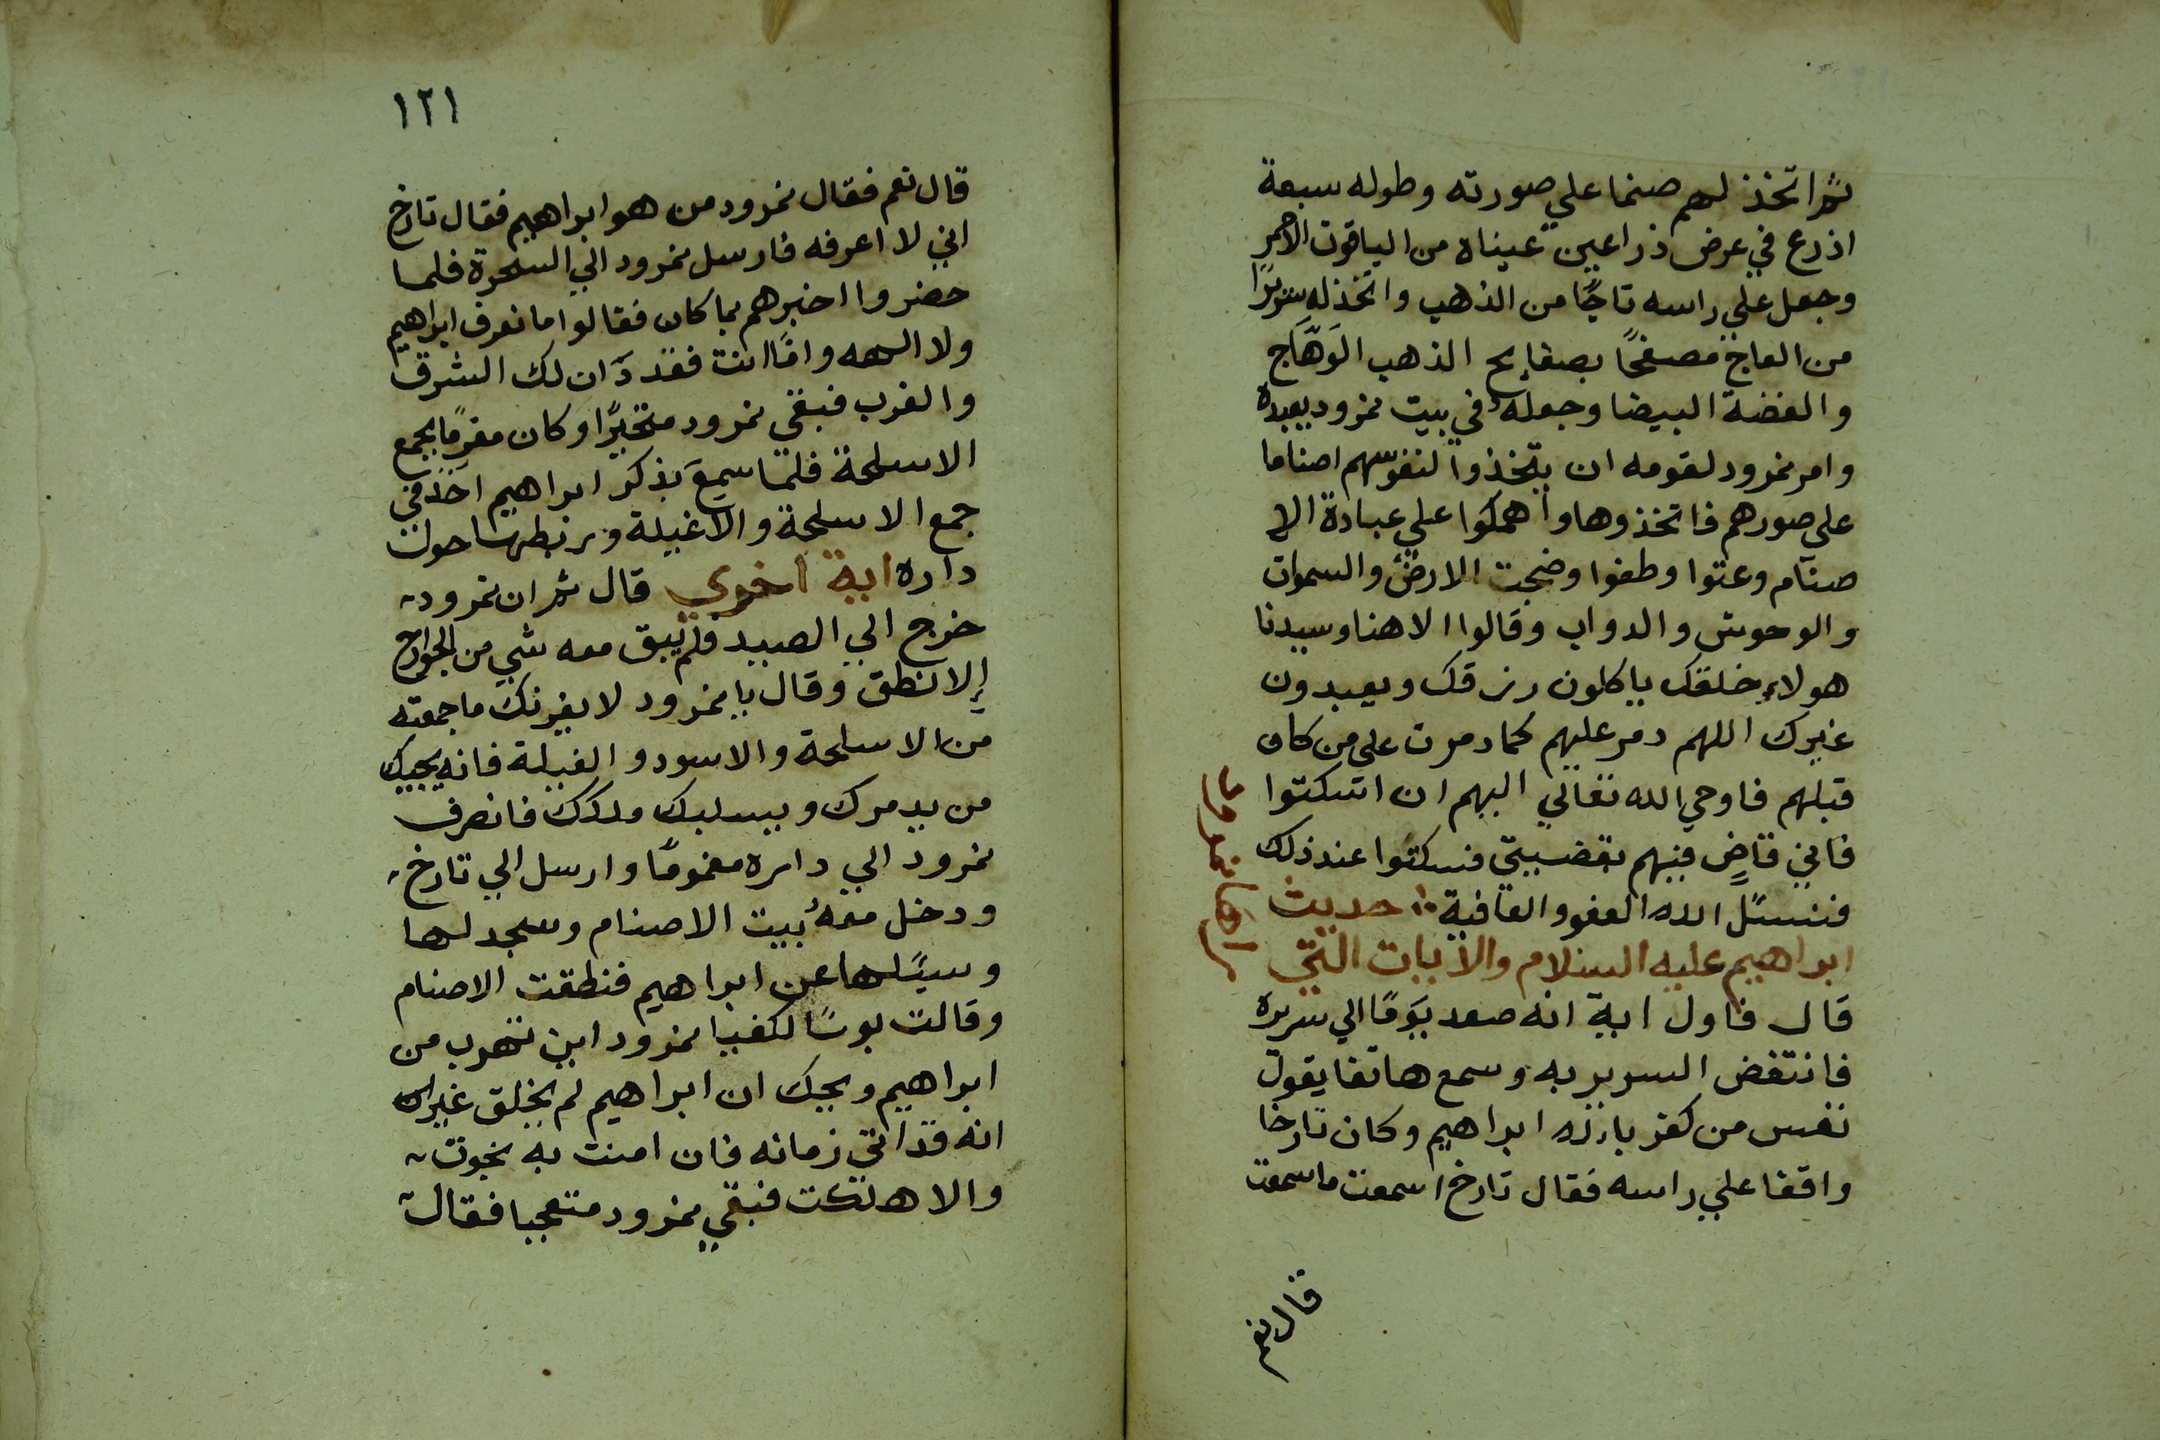 ثم اتخذ لهم صنما علي صورته وطوله سبعة
اذرع في عرض ذراعين عيناه من الياقوت الاحمر
وجعل علي راسه تاجًا من الذهب واتخذ له سريرًا
من العاج مصفحًا بصفايح الذهب الوَهّاج
والفضة البيضا وجعلهُ في بيت نمرود يعبده
وامر نمرود لقومه ان يتخذوا لنفوسهم اصناما
علي صورهم فاتخذوها وانهمكوا علي عبادة الا
صنام وعتوا وطغوا وضجت الارض والسموات
والوحوش والدواب وقالوا الاهنا وسيدنا
هولاء خلقك ياكلون رزقك ويعبدون
غيرك اللهم دمر عليهم كما دمرت علي من كان
قبلهم فاوحي الله تعالي اليهم ان اسكتوا
فاني قاضٍ فيهم بقضيتي فسكتوا عند ذلك
فنسئل الله العفو والعافية حديث
ابراهيم عليه السلام والآيات التي
راها نمرود
قال فاول اية انه صعد يَومًا الي سريره
فانتفض السرير به وسمع هاتفا يقول
تعس من كفر باله ابراهيم وكان تارخا
واقفا علي راسه فقال تارخ اسمعت ما سمعت
قال نعم
١٢١
قال نعم فقال نمرود من هو ابراهيم فقال تارخ
اني لا اعرفه فارسل نمرود الي السحرة فلما
حضروا اخبرهم بما كان فقالوا ما نعرف ابراهيم
ولا الهه وامّا انت فقد دَان لك الشرق
والغرب فبقي نمرود متحيرًا وكان مغرمًا بجمع
الاسلحة فلما سمِعَ بذكر ابراهيم اخذ في
جمع الاسلحة والافيلة وربطها حول
داره اية اخري قال ثم ان نمرود
خرج الي الصيد فلم يبق معه شي من الجوارح
إلا نطق وقال يا نمرود لا يغرنك ما جمعته
من الاسلحة والاسود والفيلة فانه يجيك
من يدمرك ويسلبك ملكك فانصرف
نمرود الي داره مغمومًا وارسل الي تارخ
ودخل معهُ بيت الاصنام وسجد لها
وسئلها عن ابراهيم فنطقت الاصنام
وقالت بوسًا لك يا نمرود اين تهرب من
ابراهيم ويحك ان ابراهيم لم يخلق غير اله
انه قد اتي زمانه فان امنت به نجوت
والا هلكت فبقي نمرود متعجبا فقال